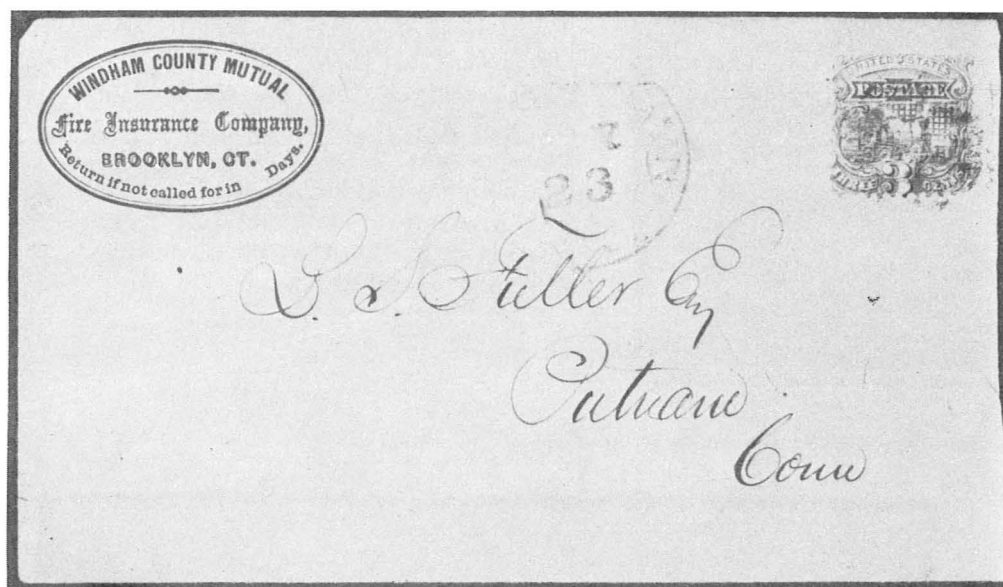 WINDHAM COUNTY MUTUAL
Fire Insurance Company,
BROOKLYN, CT.
Return if not called for in Days.
23
UNITED STATES
POSTAGE
THREE 3 CENTS
L. S. Fuller Esq
Putnam
Conn